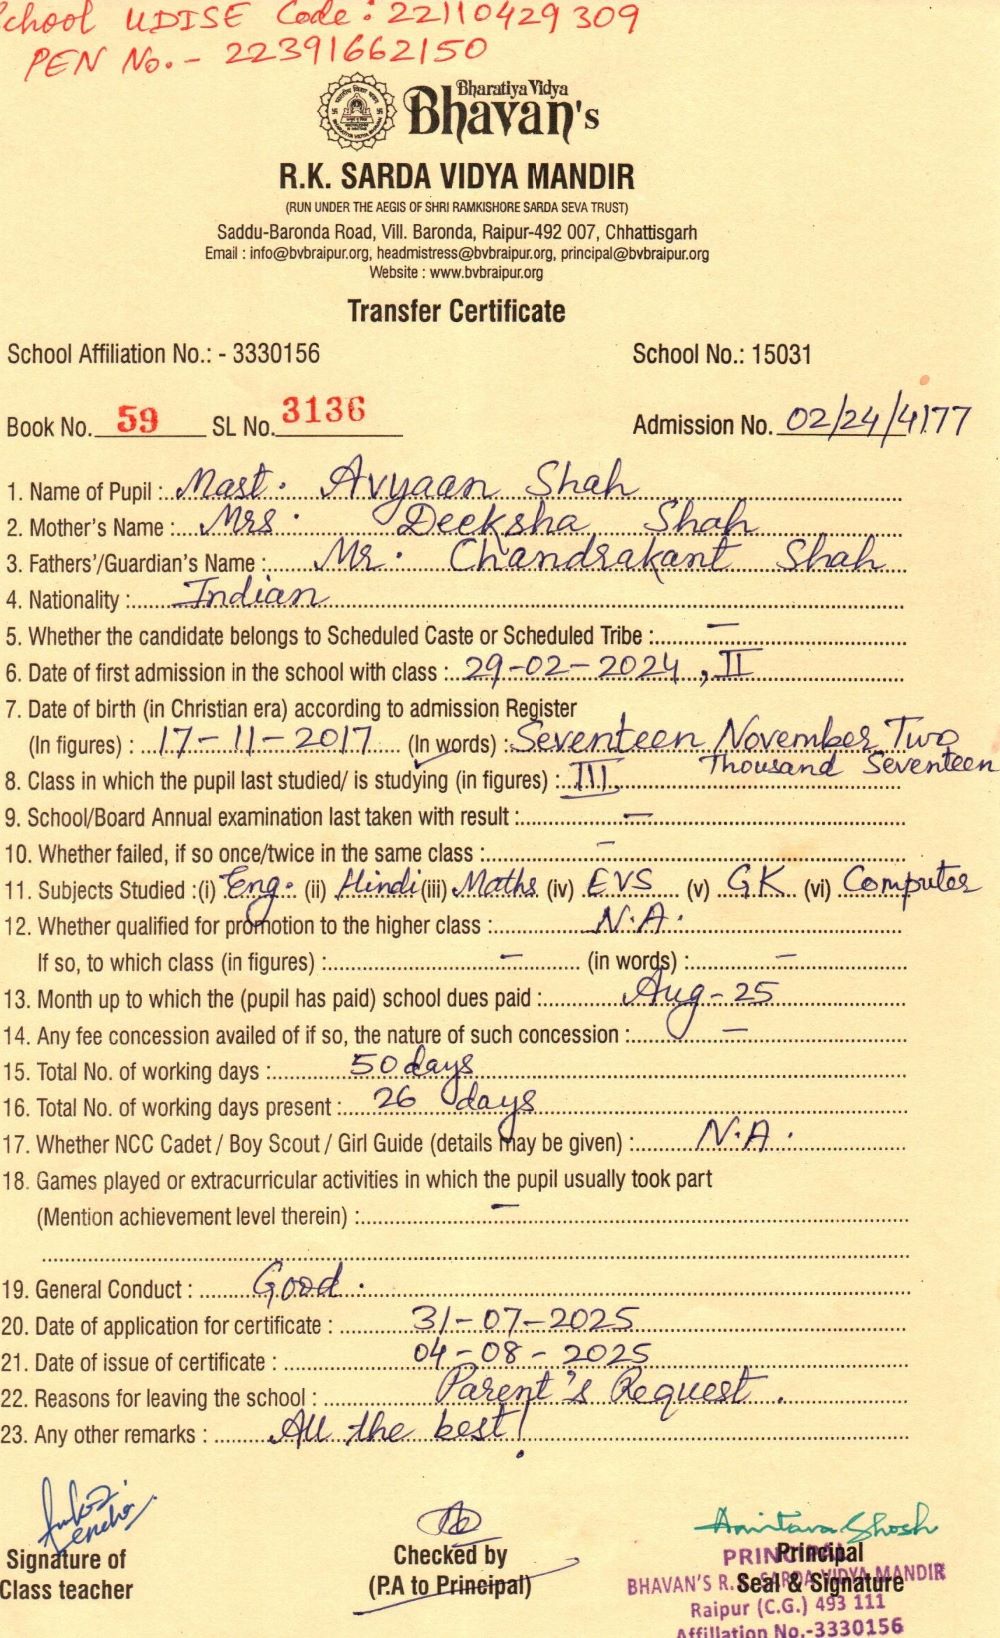 School UDISE Code : 22110429309
PEN No. - 22391662150
Bharatiya Vidya
Bhavan's
R.K. SARDA VIDYA MANDIR
(RUN UNDER THE AEGIS OF SHRI RAMKISHORE SARDA SEVA TRUST)
Saddu-Baronda Road, Vill. Baronda, Raipur-492 007, Chhattisgarh
Email : info@bvbraipur.org, headmistress@bvbraipur.org, principal@bvbraipur.org
Website : www.bvbraipur.org
Transfer Certificate
School Affiliation No.: - 3330156 School No.: 15031
Book No. 59 SL No. 3136 Admission No. 02/24/4177
1. Name of Pupil : Mast. Avyaan Shah
2. Mother's Name : Mrs. Deeksha Shah
3. Fathers'/Guardian's Name : Mr. Chandrakant Shah
4. Nationality : Indian
5. Whether the candidate belongs to Scheduled Caste or Scheduled Tribe : —
6. Date of first admission in the school with class : 29-02-2024, II
7. Date of birth (in Christian era) according to admission Register
(In figures) : 17-11-2017 (In words) : Seventeen November Two
Thousand Seventeen
8. Class in which the pupil last studied/ is studying (in figures) : III
9. School/Board Annual examination last taken with result : —
10. Whether failed, if so once/twice in the same class : —
11. Subjects Studied :(i) Eng. (ii) Hindi (iii) Maths (iv) EVS (v) G.K. (vi) Computer
12. Whether qualified for promotion to the higher class : N.A.
If so, to which class (in figures) : — (in words) : —
13. Month up to which the (pupil has paid) school dues paid : Aug-25
14. Any fee concession availed of if so, the nature of such concession : —
15. Total No. of working days : 50 days
16. Total No. of working days present : 26 days
17. Whether NCC Cadet / Boy Scout / Girl Guide (details may be given) : N.A.
18. Games played or extracurricular activities in which the pupil usually took part
(Mention achievement level therein) : —
19. General Conduct : Good.
20. Date of application for certificate : 31-07-2025
21. Date of issue of certificate : 04-08-2025
22. Reasons for leaving the school : Parent's Request.
23. Any other remarks : All the best!
Amitava Ghosh
Signature of Checked by Principal
Class teacher (P.A to Principal) Seal & Signature
PRINCIPAL
BHAVAN'S R.K. SARDA VIDYA MANDIR
Raipur (C.G.) 493 111
Affiliation No.-3330156